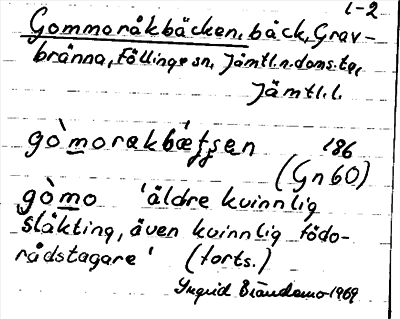 1-2
Gommoråkbäcken, bäck, Grav-
bränna, Föllinge sn, Jämtl.n.doms.tg,
Jämtl.l.
gò̀morakbéʄʄen 186
(Gn 60)
gòmo 'äldre kvinnlig
släkting, även kvinnlig födo-
rådstagare' (forts.)
Ingrid Brändemo 1969